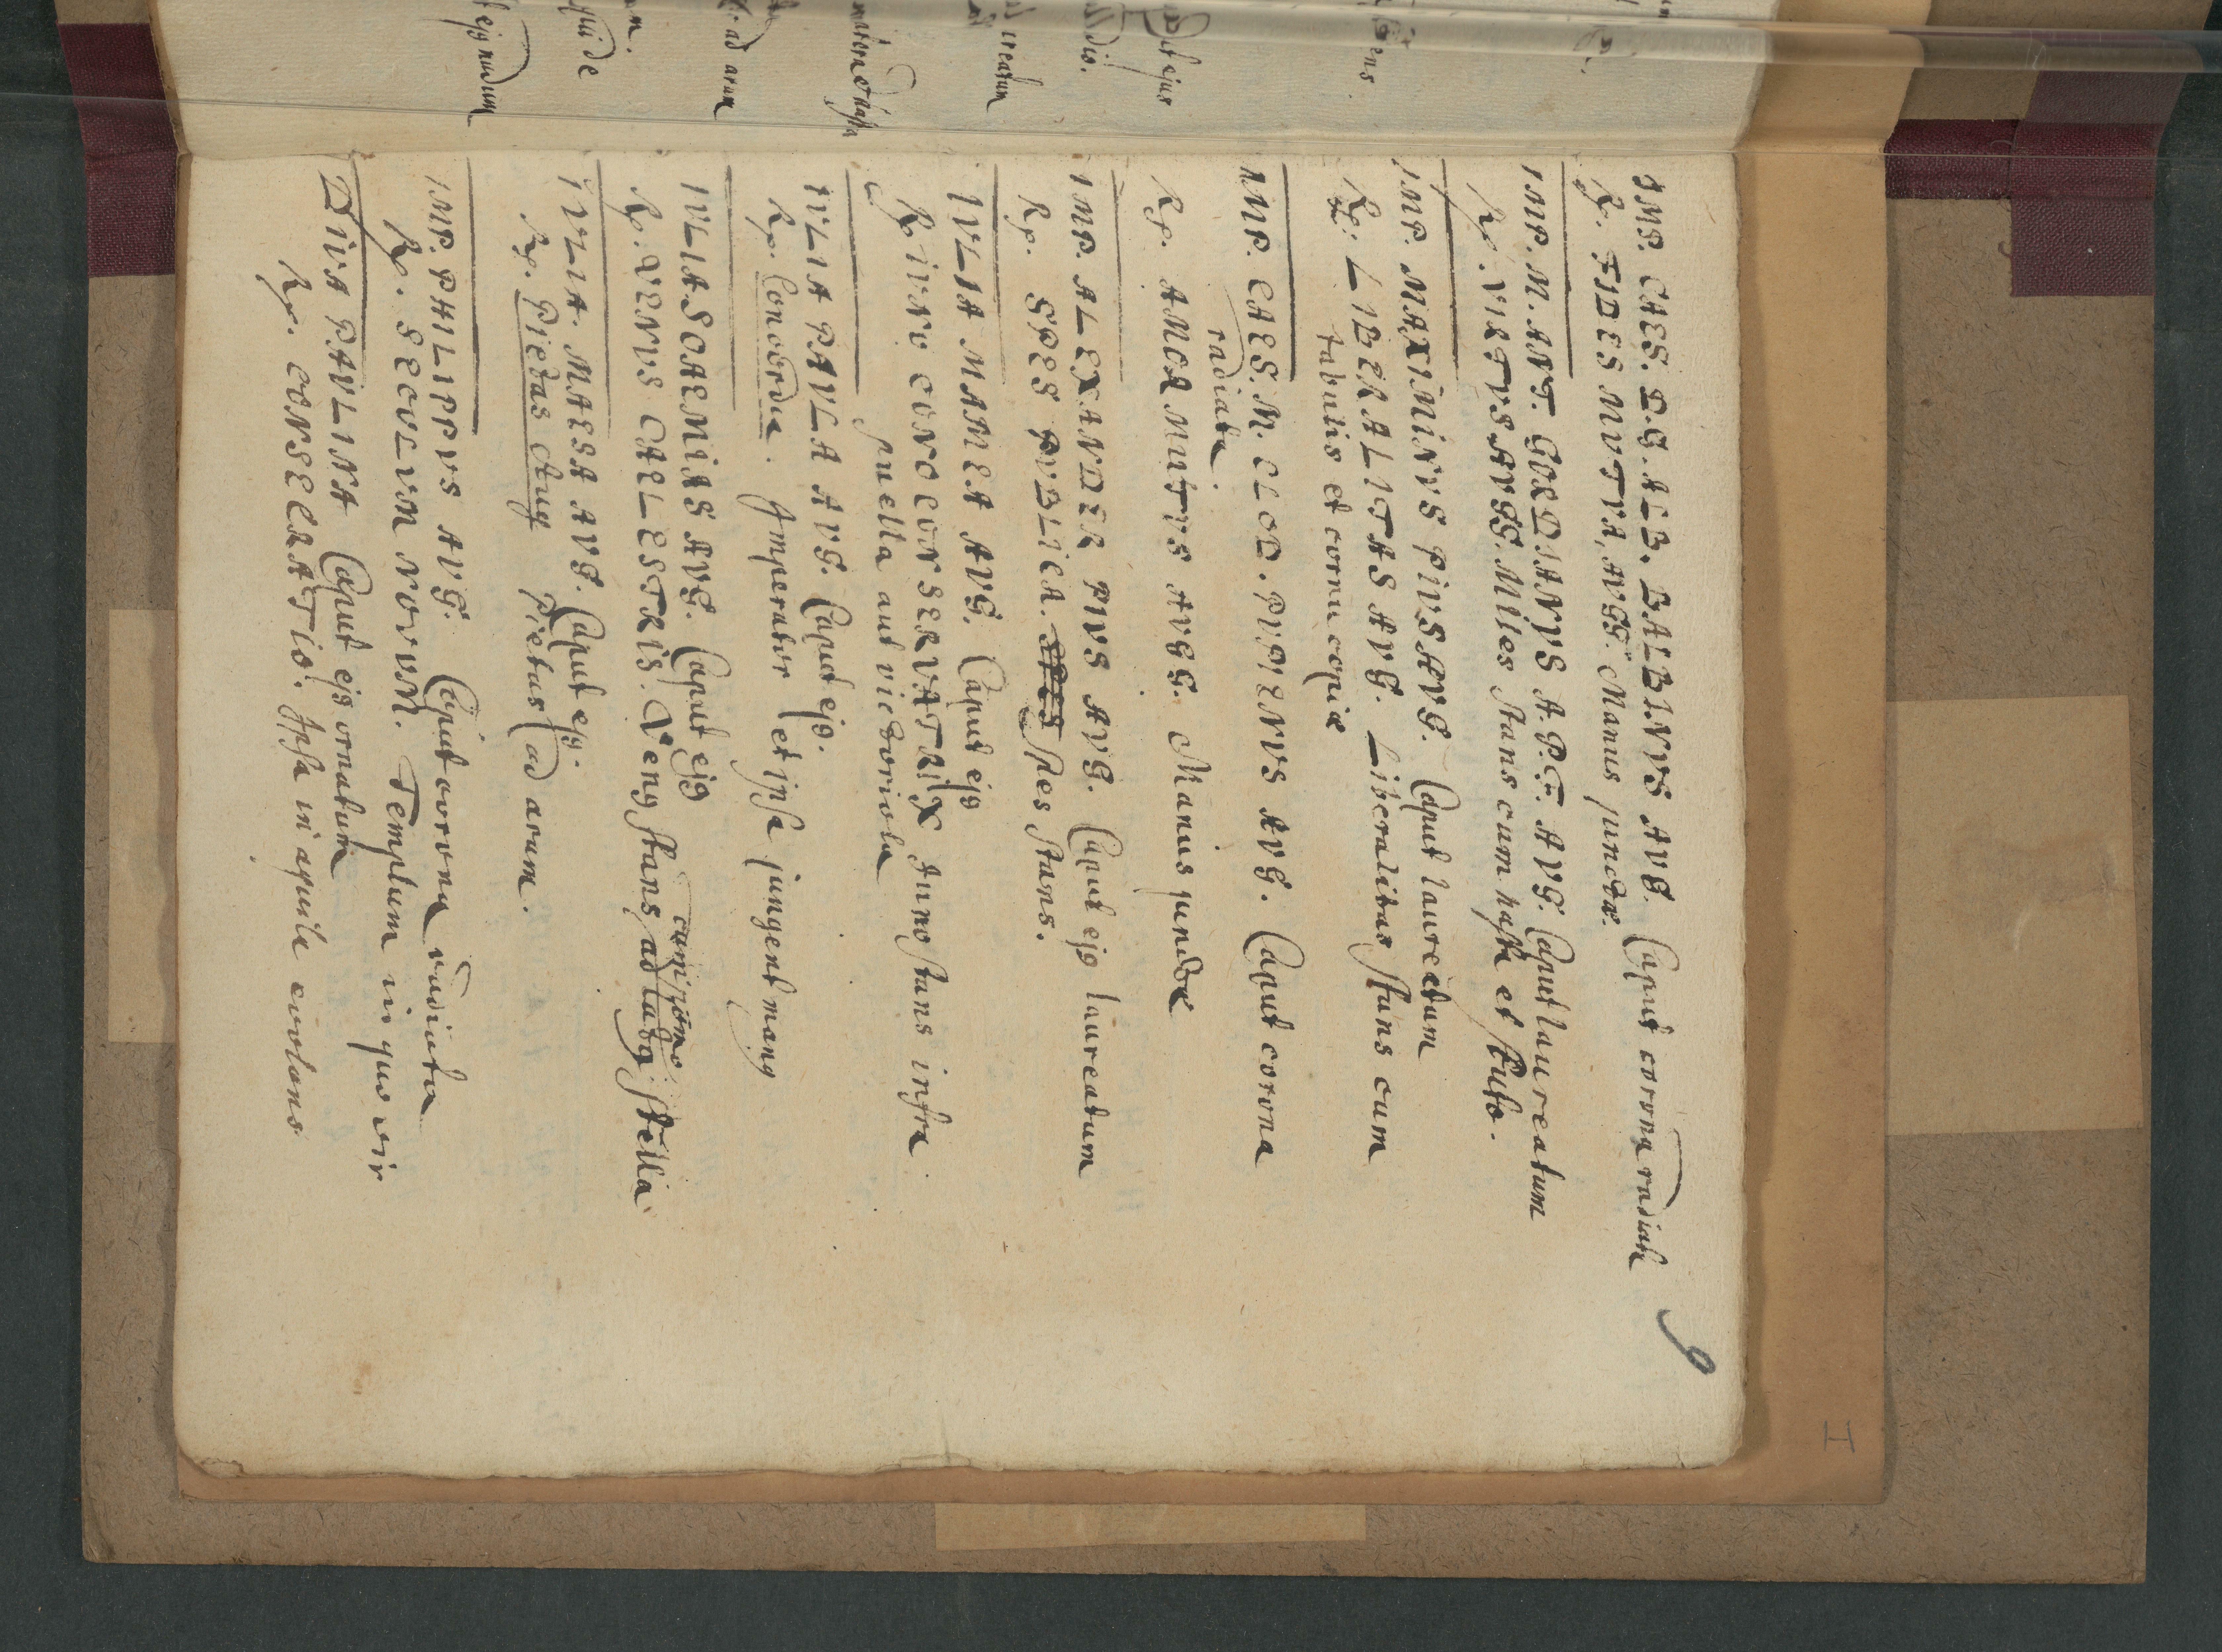 9
IMP. CAES. D. C. AEL. BALBINVS AVG. Caput corona radiata
Rp. FIDES MVTVA AVGG. Manus junctæ.
IMP. M. ANT. GORDIANVS A. P. F. AVG. Caput laureatum
Rp. VIRTVS AVGG. Miles stans cum hasta et scuto.
IMP. MAXIMINVS PIVS AVG. Caput laureatum
Rp. LIBERALITAS AVG. Liberalitas stans cum
tabulis et cornu copiæ
IMP. CAES. M. CLOD. PVPIENVS AVG. Caput corona
radiata
Rp. AMOR MUTVS AVGG. Manus junctæ
IMP. ALEXANDER PIVS AVG. Caput ej9 laureatum
Rp. SPES PVBLICA. Spes stans.
IVLIA MAMEA AVG. Caput ej9
Rp. IVNO CONSERVATRIX Juno stans infra
puella aut victoriola
IVLIA PAVLA AVG. Caput ej9.
Rp. Concordia. Imperator et ipsa jungent man9
IVLIA SOAEMIAS AVG. Caput ej9
Rp. VENVS CAELESTRIS. Ven9 stans cum pomo ad stella
IVLIA MAESA AVG. Caput ej9.
Rp. Pietas Aug Pietas ad aram.
IMP. PHILIPPVS AVG. Caput corona radiata
Rp. SECVLVM NOVVM. Templum in quo vir
DIVA PAVLINA Caput ej9 ornatum
Rp. CONSECRATIO. Ipsa in aquila evolans